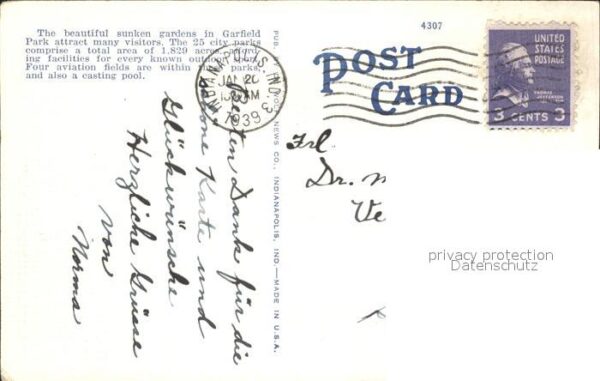 The beautiful sunken gardens in Garfield
Park attract many visitors. The 25 city parks
comprise a total area of 1,829 acres, afford-
ing facilities for every known outdoor sport.
Four aviation fields are within the parks,
and also a casting pool.
4307
POST
CARD
UNITED
STATES
POSTAGE
THOMAS JEFFERSON
3 CENTS 3
INDIANAPOLIS, IND. 3
JAN 20
AM
1939
PUB. NEWS CO., INDIANAPOLIS, IND.—MADE IN U.S.A.
Besten Dank für die
schöne Karte und
Glückwünsche
Herzliche Grüsse
von
Norma
Frl
Dr.
privacy protection
Datenschutz